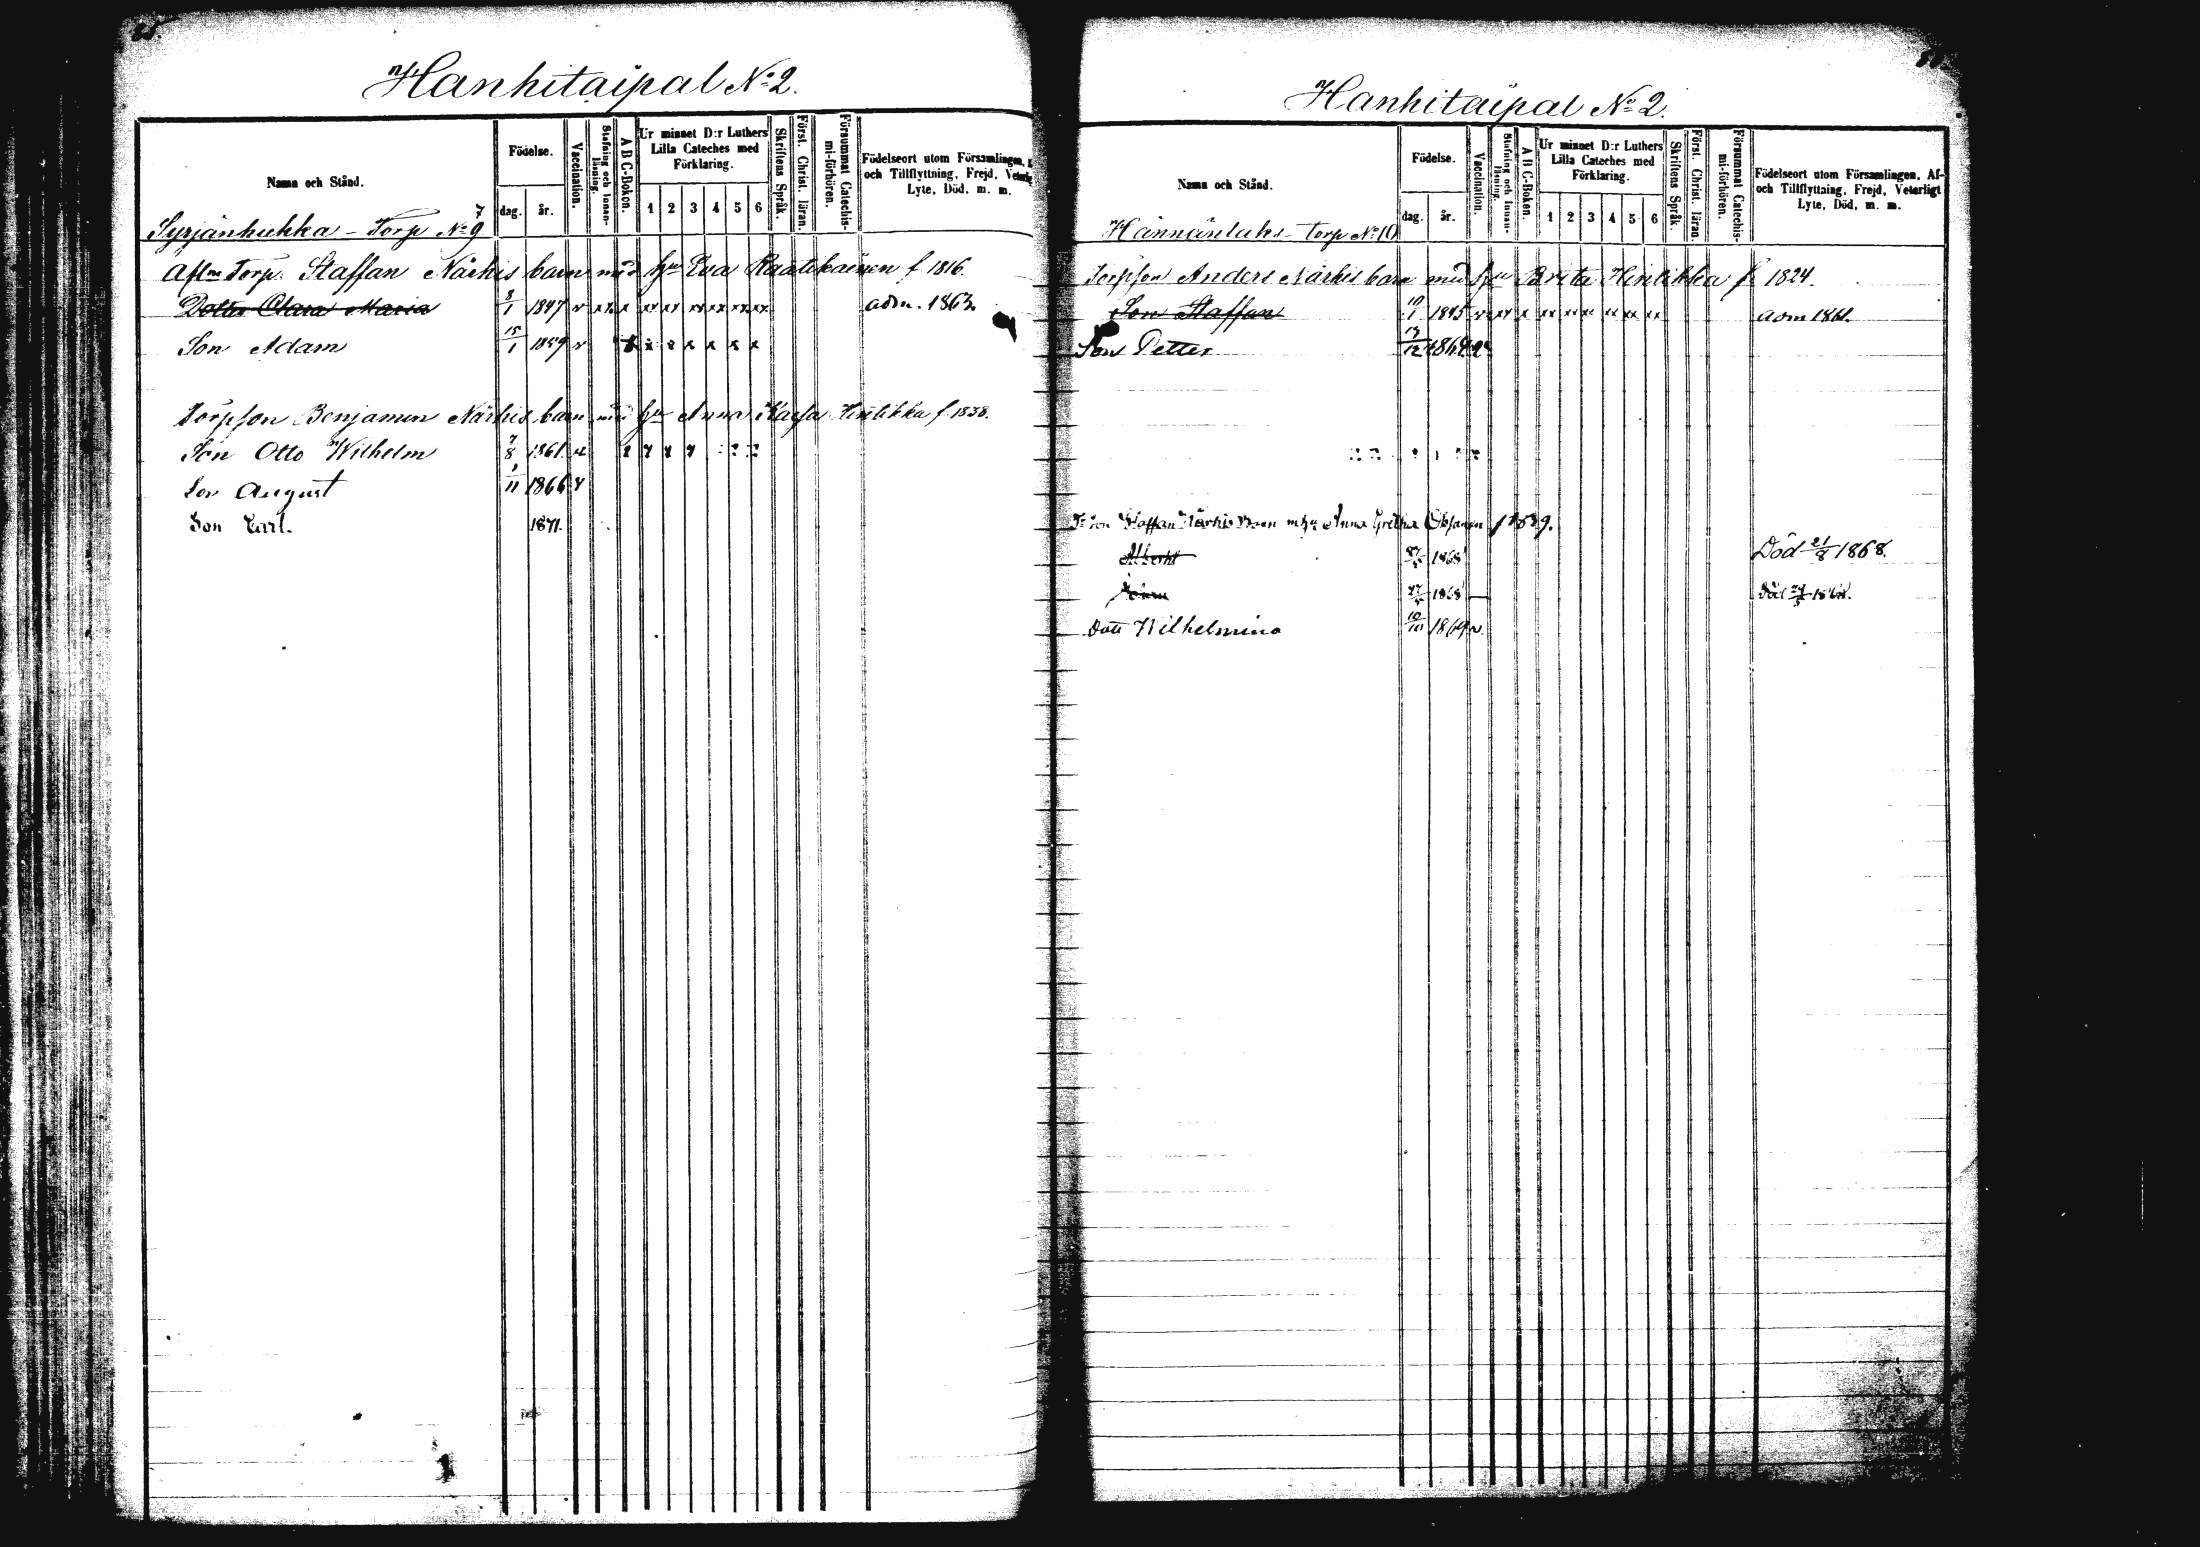 85.
Hanhitaipal No 2.
Namn och Stånd.
Födelse.
dag. år.
Vaccination.
Stafning och Innan-läsning.
A B C-Boken.
Ur minnet D:r Luthers Lilla Cateches med Förklaring.
1 2 3 4 5 6
Skriftens Språk.
Först. Christ. läran.
Försummat Catechis-mi-förhören.
Födelseort utom Församlingen,
och Tillflyttning, Frejd,
Lyte, Död, m. m.
7
Syrjänhuhka - Torp No 9
Afl=ne Torp. Staffan Närhis barn med hu Eva Raatikainen f 1816.
Dotter Clara Maria 8/1 1847 v xx x xx xx xx xx xx xx adm. 1863.
Son Adam 15/1 1859 v x x x x x x x
Torpson Benjamin Närhis barn med hu Anna Kaisa Hintikka f. 1838.
Son Otto Wilhelm 7/8 1861. v
Son August 1/11 1866 v
Son Carl. 1871.
Hanhitaipal No 2.
Namn och Stånd.
Födelse.
dag. år.
Vaccination.
Stafning och Innan-läsning.
A B C-Boken.
Ur minnet D:r Luthers Lilla Cateches med Förklaring.
1 2 3 4 5 6
Skriftens Språk.
Först. Christ. läran.
Försummat Catechis-mi-förhören.
Födelseort utom Församlingen, Af-
och Tillflyttning, Frejd, Veterligt
Lyte, Död, m. m.
Hännänlaks - Torp No 10
Torpson Anders Närhis barn med hu Brita Hintikka f. 1824.
Son Staffan 10/1 1845 v xx x xx xx xx xx xx xx adm 1861.
Son Petter 1864 v
Staffan Närhis Barn m hu Anna Gretha Oksanen f 1839.
Albert 27/5 1868 Död 21/8 1868.
Johan 27/5 1868 — Död 1868.
Dott Wilhelmina 10/10 1869 v.